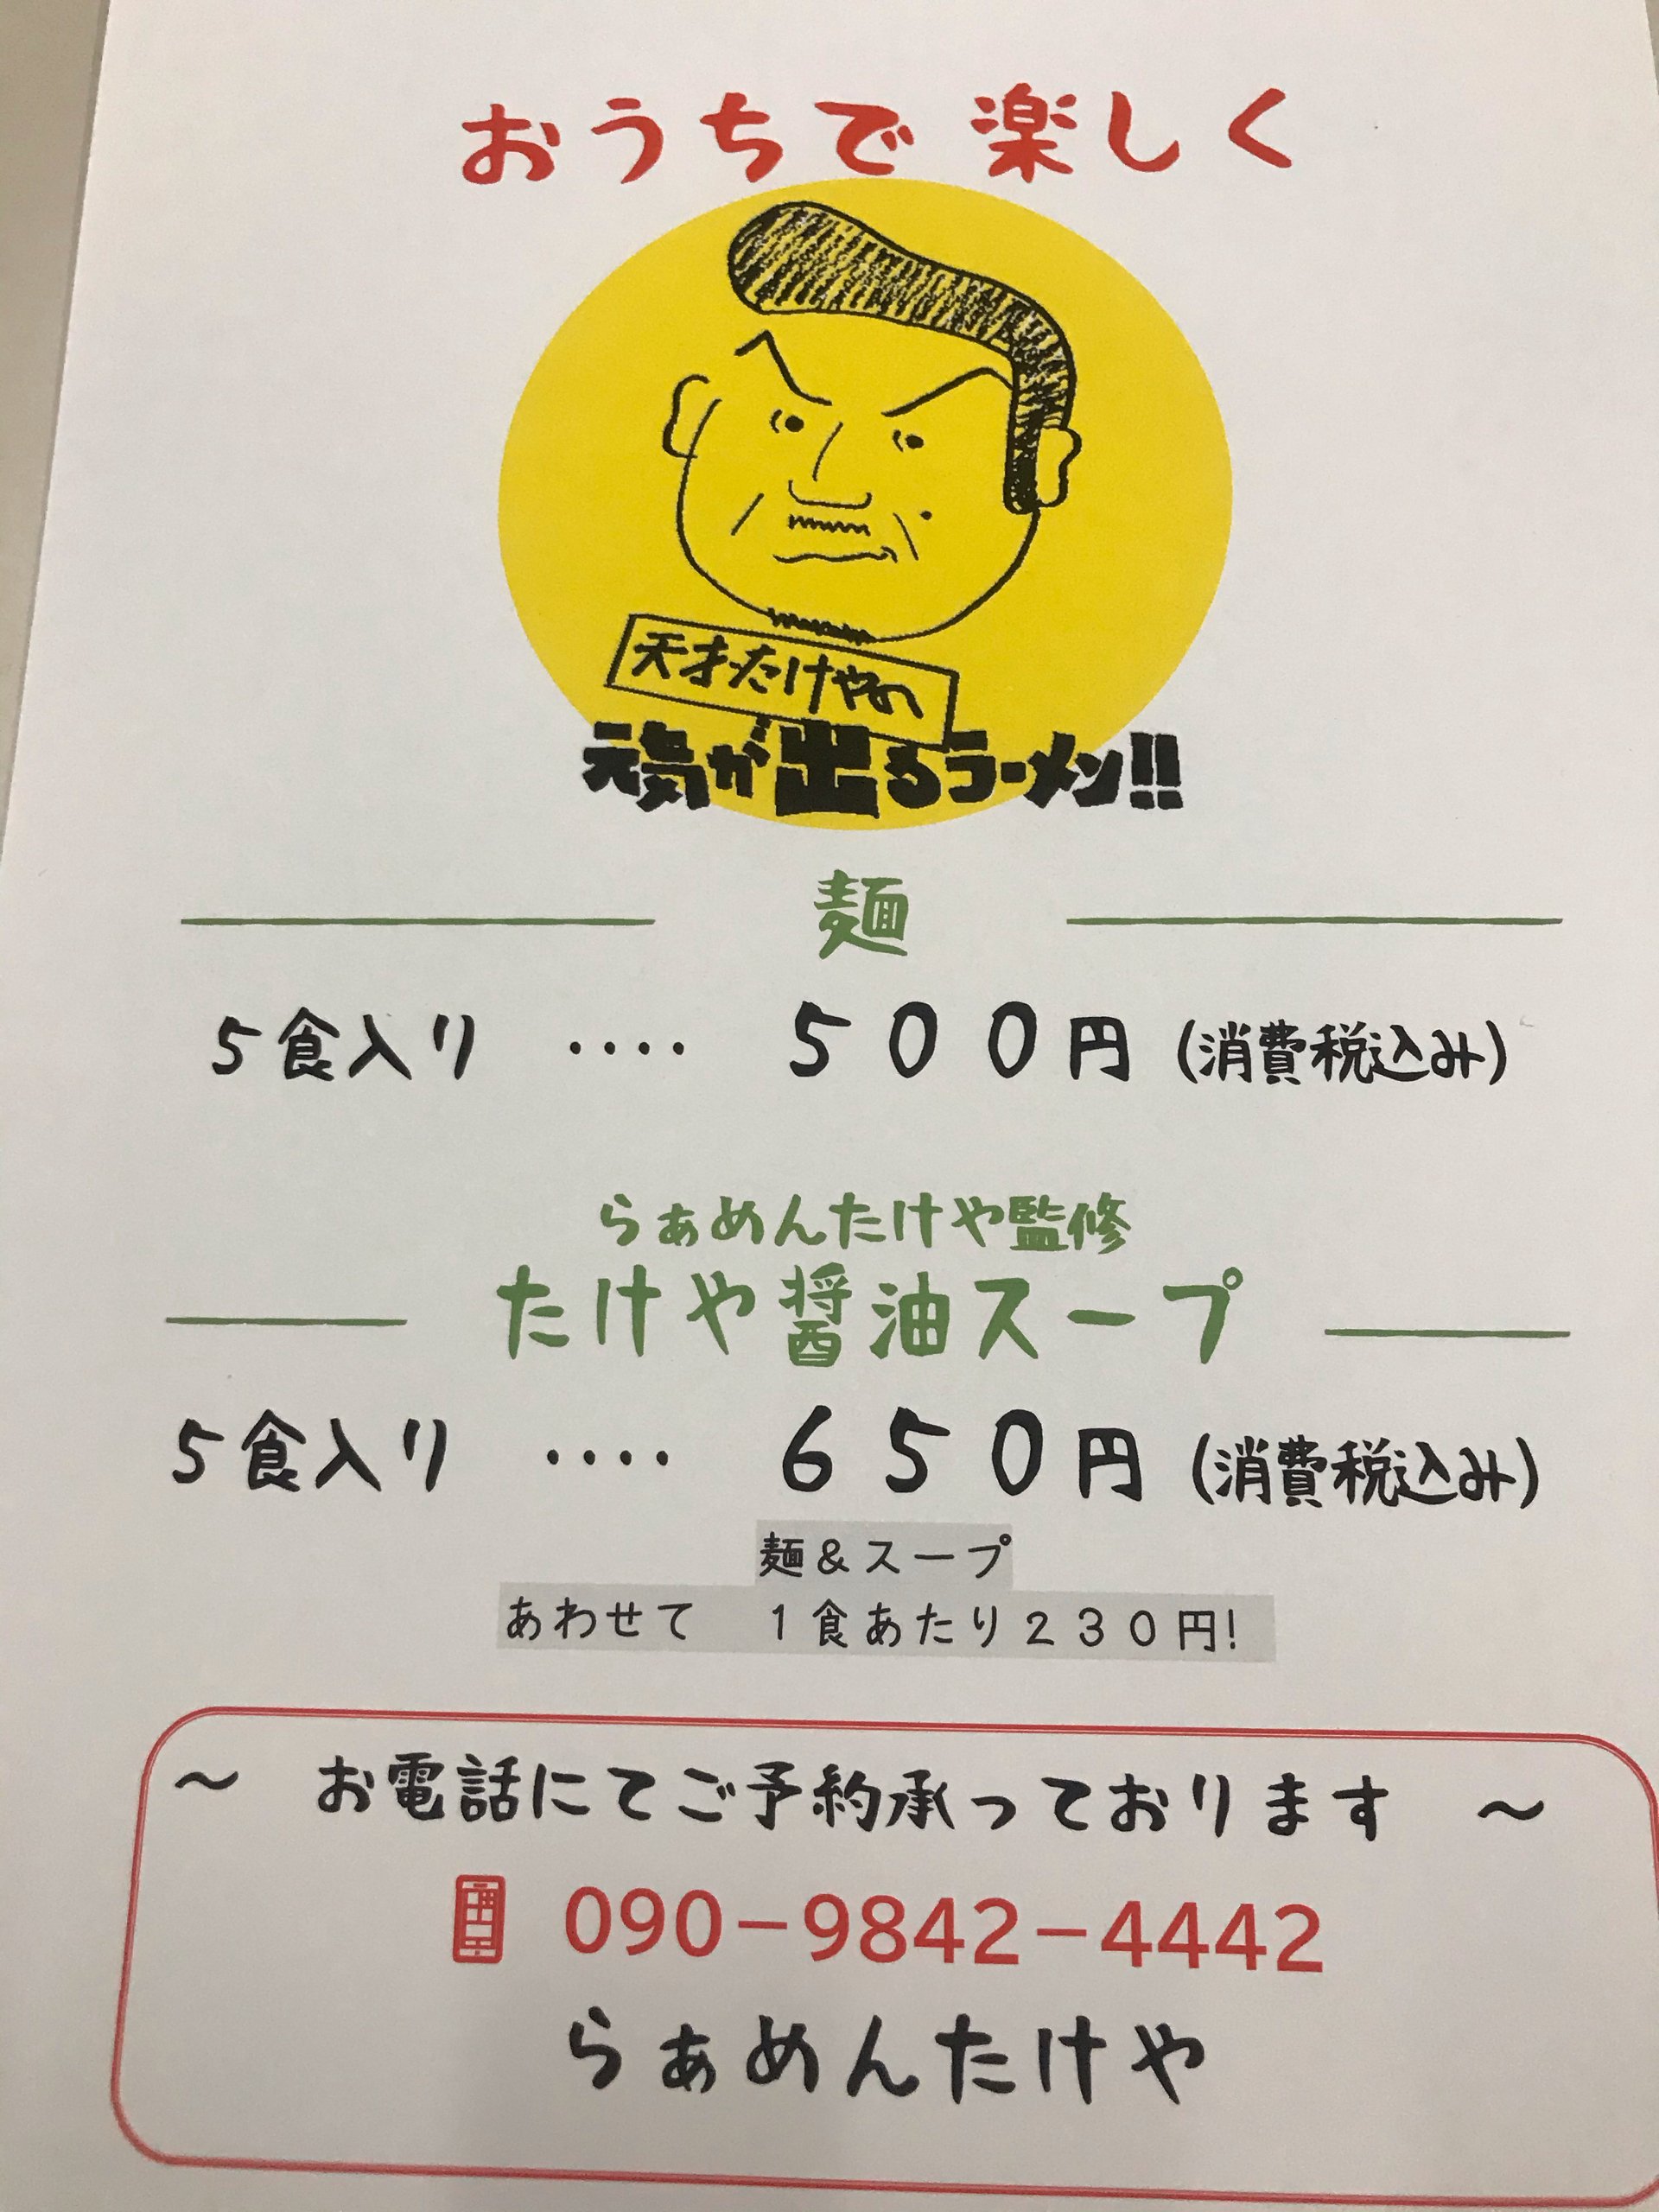 おうちで 楽しく
天才たけやの
元気が出るラーメン!!
麺
5食入り ‥‥ 500円 (消費税込み)
らぁめんたけや監修
たけや醤油スープ
5食入り ‥‥ 650円 (消費税込み)
麺&スープ
あわせて 1食あたり230円!
～ お電話にてご予約承っております ～
090-9842-4442
らぁめんたけや